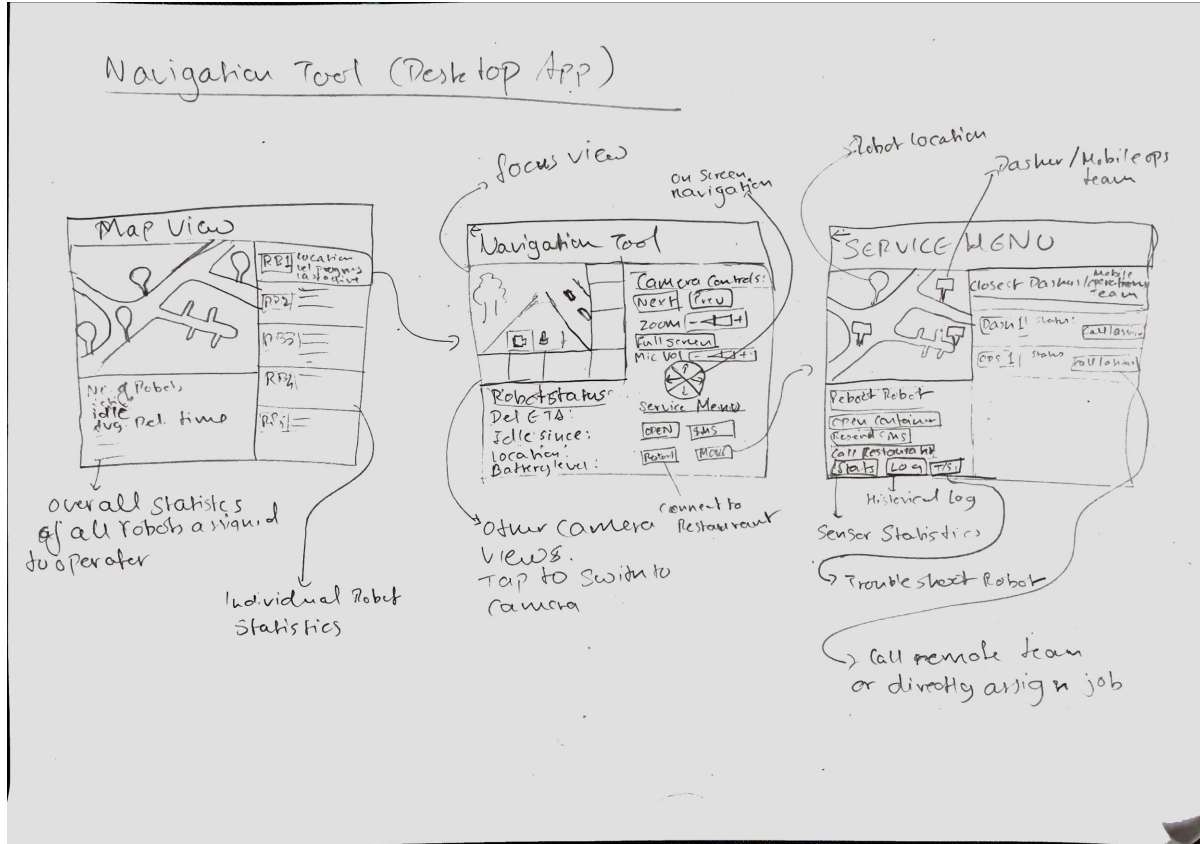 Navigation Tool (Desktop App)
Map View
RB1
Location
Del progress
last active
RB2
RB3
RB4
RB5
No. of Robots
active
idle
Avg Del. time
overall statistcs
of all robots assignd
to operater
Individual Robot
Statistics
focus view
on screen
navigation
Navigation Tool
Camera Controls:
Next
Prev
Zoom
-
+
Full screen
Mic Vol
-
+
Robot status:
Del ETA:
Idle since:
Location:
Battery level:
Service Menu
OPEN
SMS
Restau
More
Connect to
Restaurant
Other camera
views.
Tap to switch to
camera
Robot Location
Dasher/Mobile ops
team
SERVICE MENU
Closest Dasher/
Mobile
operations
team
Dash 1
Status:
Call/assign
OPS 1
Status
Call/assign
Reboot Robot
Open Container
Resend SMS
Call Restaurant
Stats
Log
T/S
Historical log
Sensor Statistics
Troubleshoot Robot
Call remote team
or directly assign job